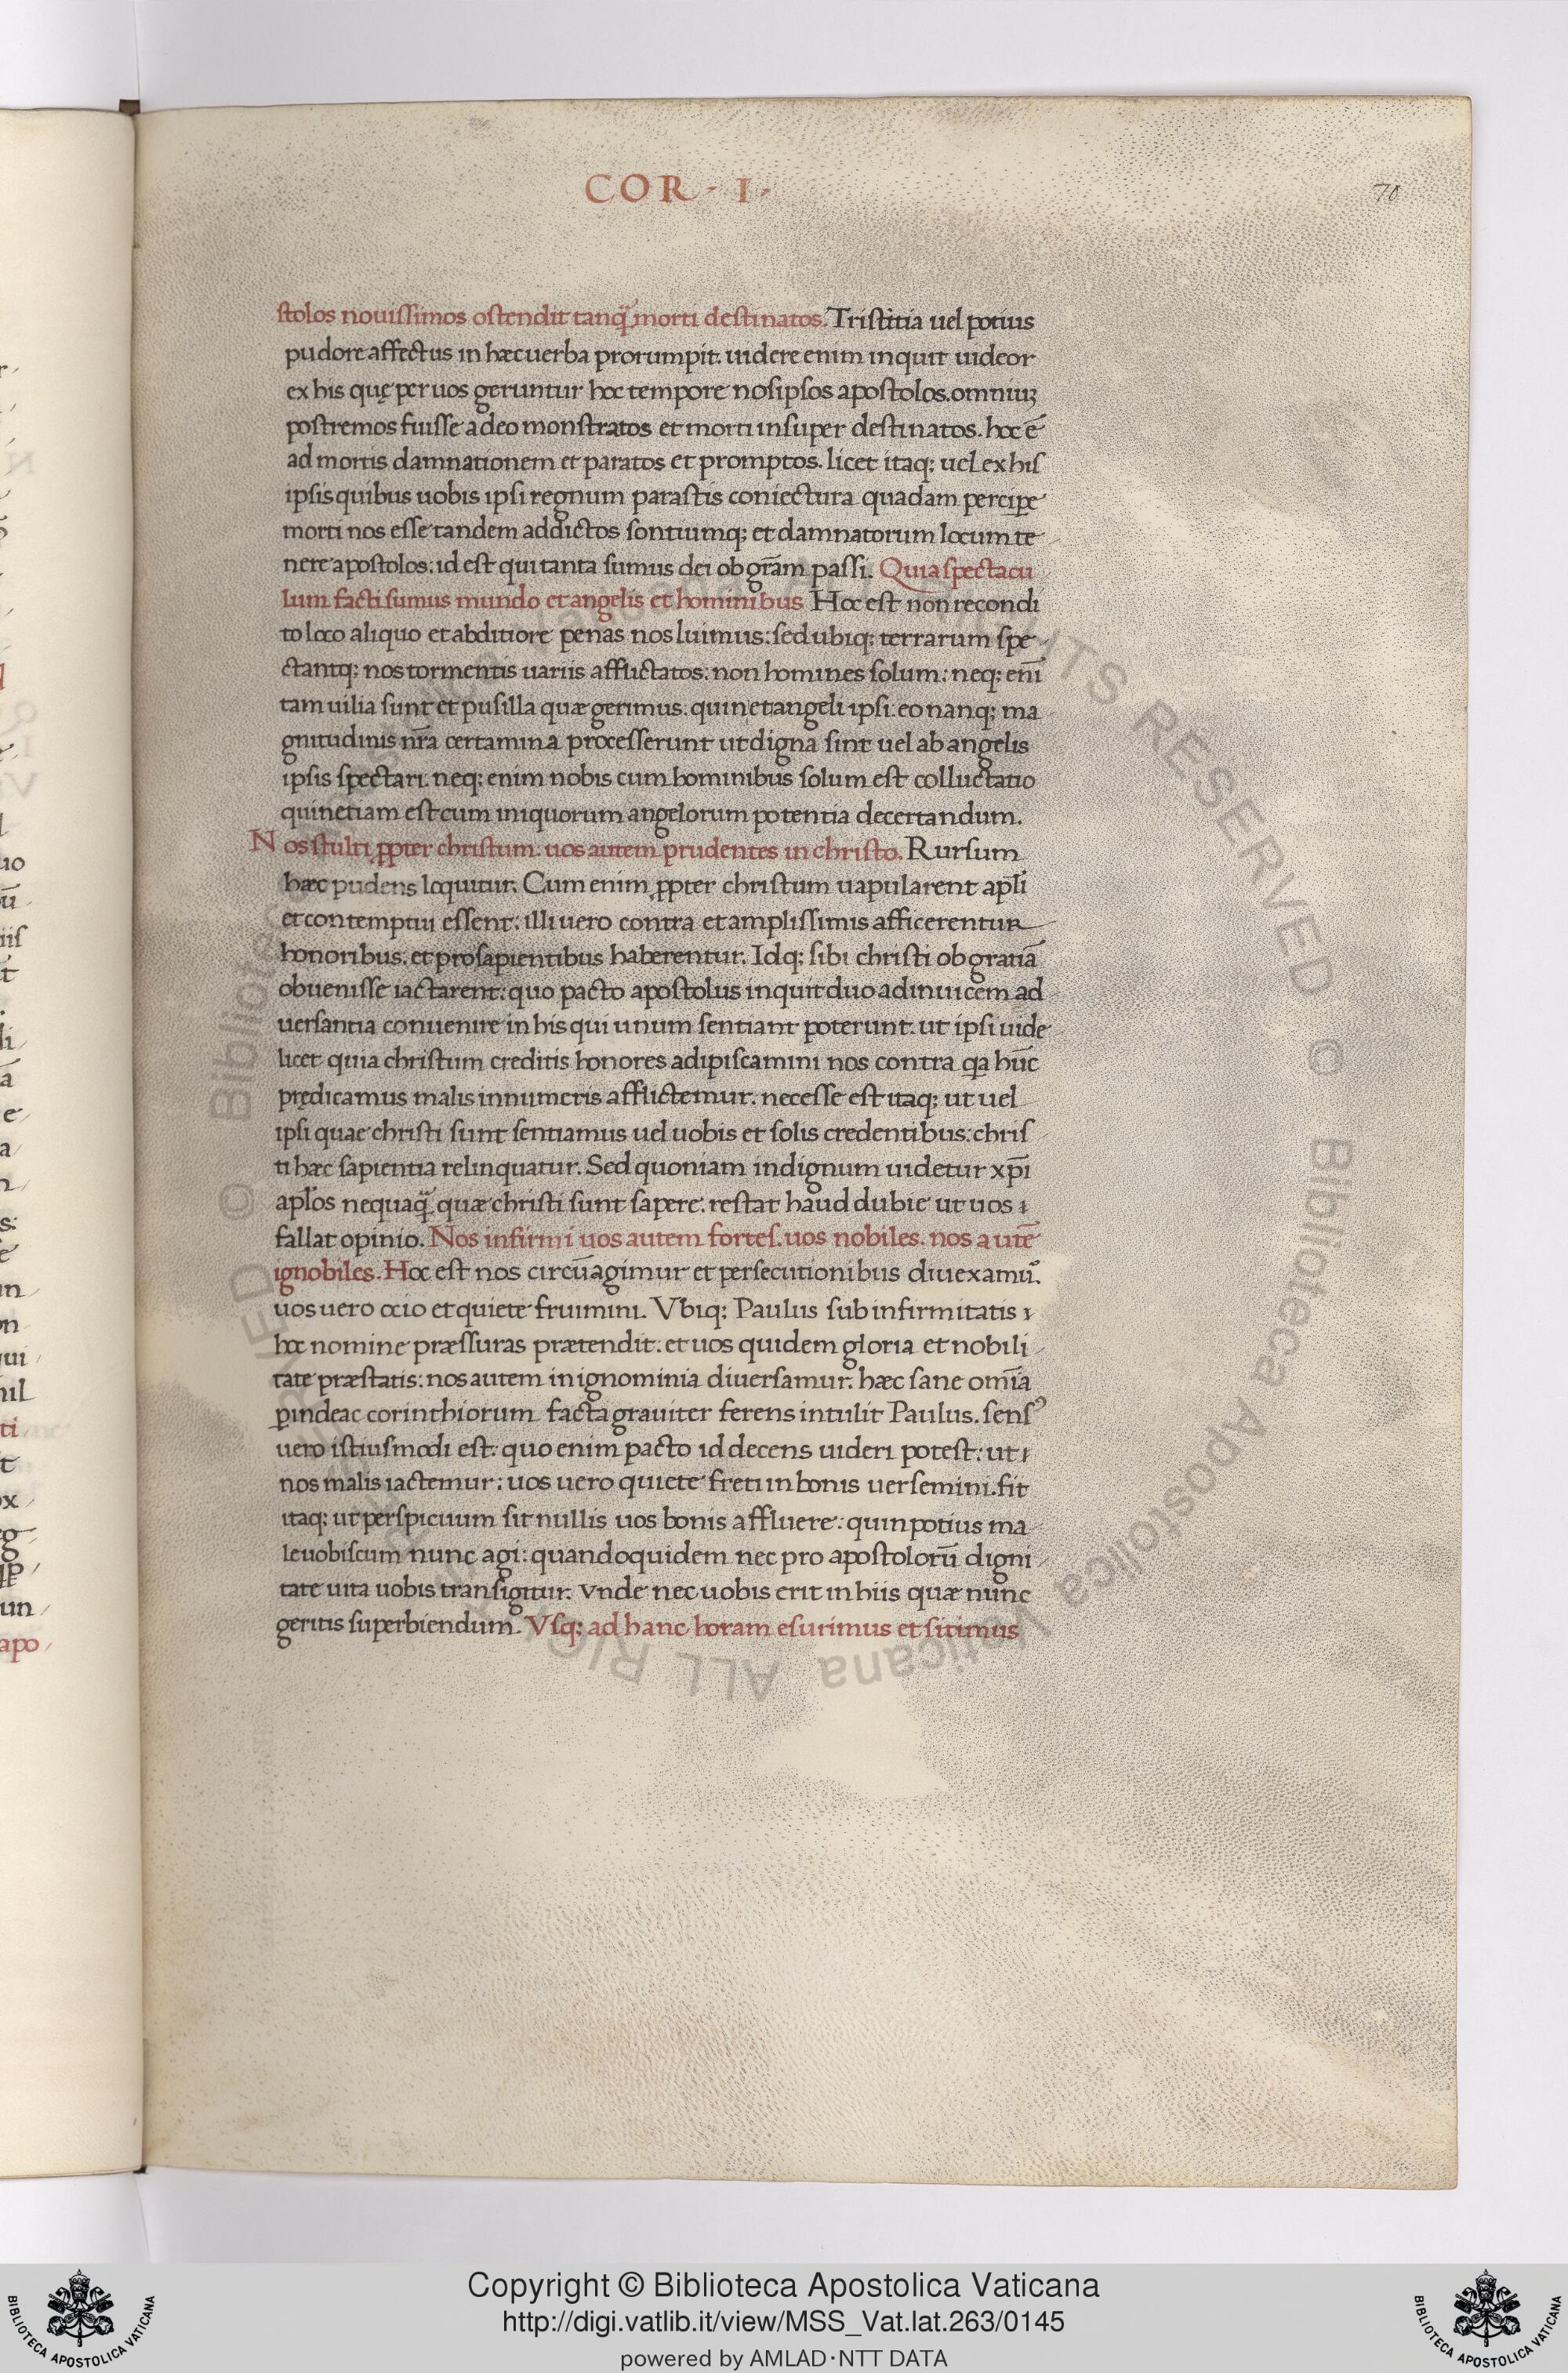 COR · I ·
70
stolos nouissimos ostendit tanq̃ morti destinatos. Tristitia uel potius
pudore affectus in hæc uerba prorumpit. uidere enim inquit uideor
ex his quę per uos geruntur hoc tempore nosipsos apostolos. omniuꝫ
postremos fuisse adeo monstratos et morti insuper destinatos. hoc ē
ad mortis damnationem et paratos et promptos. licet itaq; uel ex his
ipsis quibus uobis ipsi regnum parastis coniectura quadam percipe
morti nos esse tandem addictos sontiumq; et damnatorum locum te
nere apostolos: id est qui tanta sumus dei ob gr̃am passi. Quia spectacu
lum facti sumus mundo et angelis et hominibus Hoc est non recondi
to loco aliquo et abditiore penas nos luimus: sed ubiq; terrarum spe
ctantq; nos tormentis uariis afflictatos: non homines solum: neq; eni̅
tam uilia sunt et pusilla quæ gerimus. quin et angeli ipsi. eo nanq; ma
gnitudinis nr̃a certamina processerunt ut digna sint uel ab angelis
ipsis spectari. neq; enim nobis cum hominibus solum est colluctatio
quinetiam est cum iniquorum angelorum potentia decertandum.
Nos stulti ꝓpter christum. uos autem prudentes in christo. Rursum
hæc pudens loquitur. Cum enim ꝓpter christum uapularent apl̃i
et contemptui essent: illi uero contra et amplissimis afficerentur
honoribus. et pro sapientibus haberentur. Idq; sibi christi ob gratiā
obuenisse iactarent: quo pacto apostolus inquit duo adinuicem ad
uersantia conuenire in his qui unum sentiant poterunt. ut ipsi uide
licet quia christum creditis honores adipiscamini nos contra qa hūc
prędicamus malis innumeris afflictemur. necesse est itaq; ut uel
ipsi quae christi sunt sentiamus uel uobis et solis credentibus: chris
ti hæc sapientia relinquatur. Sed quoniam indignum uidetur xp̄i
apl̃os nequaq̃ quæ christi sunt sapere. restat haud dubie ut uos
fallat opinio. Nos infirmi uos autem fortes. uos nobiles. nos autē
ignobiles. Hoc est nos circūagimur et persecutionibus diuexamu᷒.
uos uero ocio et quiete fruimini. Vbiq; Paulus sub infirmitatis
hoc nomine præssuras prætendit. et uos quidem gloria et nobili
tate præstatis: nos autem in ignominia diuersamur. hæc sane om̄ia
ꝑindeac corinthiorum facta grauiter ferens intulit Paulus. sensꝰ
uero istiusmodi est: quo enim pacto id decens uideri potest: ut
nos malis iactemur: uos uero quiete freti in bonis uersemini. fit
itaq; ut perspicuum sit nullis uos bonis affluere: quin potius ma
le uobiscum nunc agi: quandoquidem nec pro apostolorū digni
tate uita uobis transigitur. vnde nec uobis erit in hiis quæ nunc
geritis superbiendum. Vsq; ad hanc horam esurimus et sitimus
Copyright © Biblioteca Apostolica Vaticana
http://digi.vatlib.it/view/MSS_Vat.lat.263/0145
powered by AMLAD·NTT DATA
BIBLIOTECA APOSTOLICA VATICANA
BIBLIOTECA APOSTOLICA VATICANA